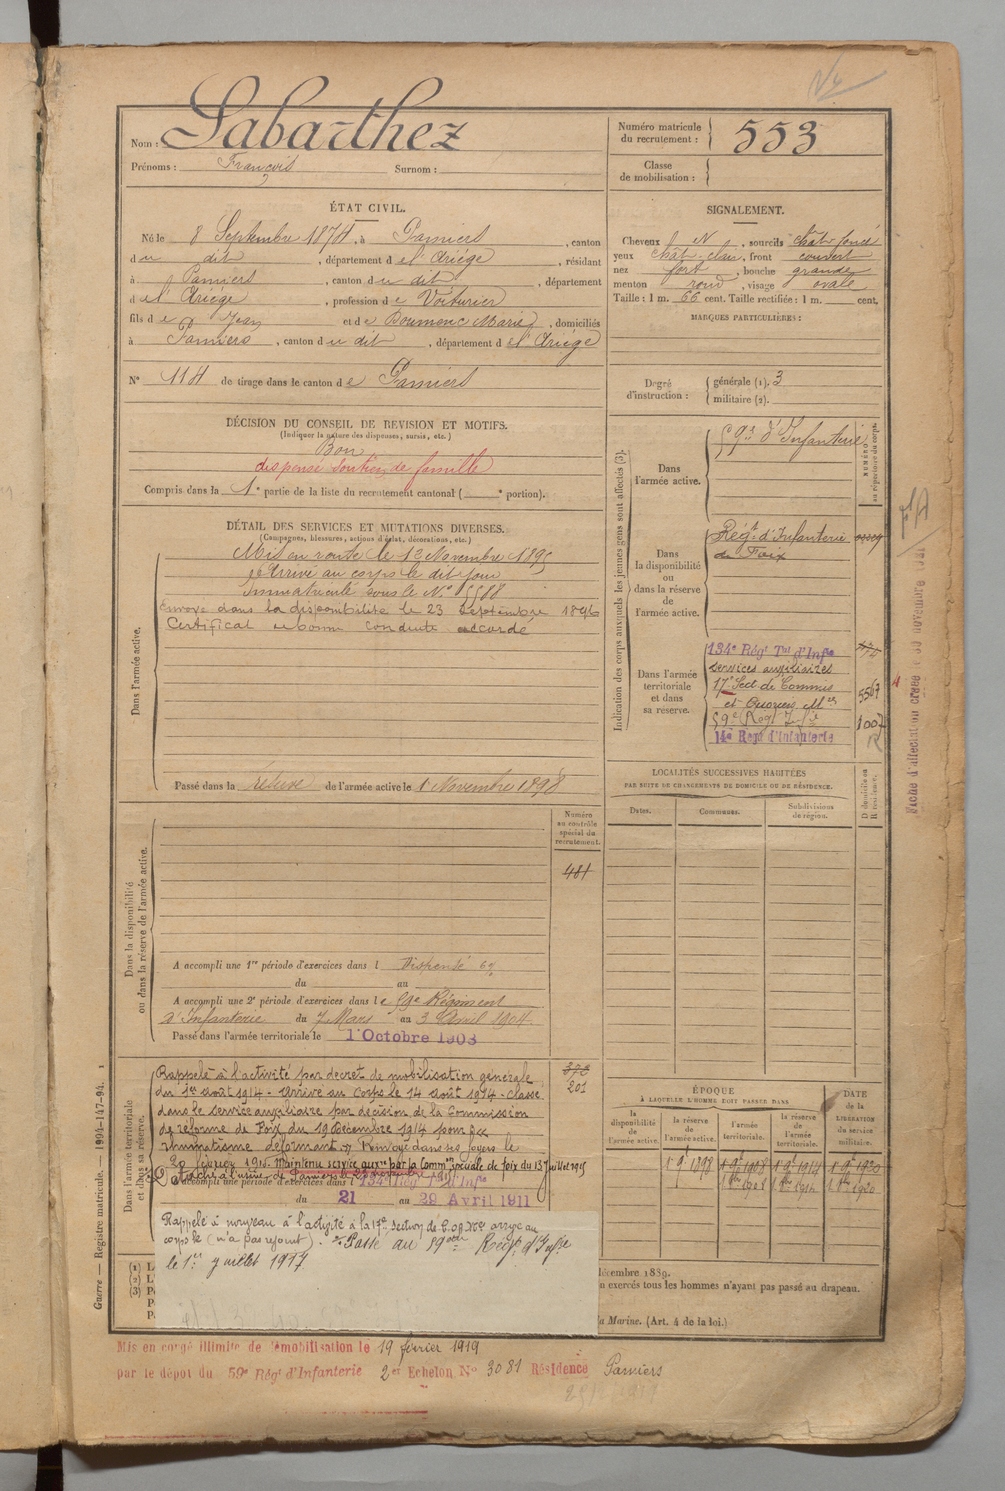 Nom : Labarthez
Prénoms : François Surnom :
Numéro matricule du recrutement : 553
Classe de mobilisation :
ÉTAT CIVIL.
Né le 8 Septembre 1874, à Pamiers, canton
du dit, département de l'Ariége, résidant
à Pamiers, canton du dit, département
de l'Ariége, profession de Voiturier
fils de Jean et de Marie, domiciliés
à Pamiers, canton du dit, département de l'Ariége
N° 114 de tirage dans le canton de Pamiers
SIGNALEMENT.
Cheveux N, sourcils chât. foncé
yeux chât. clair, front couvert
nez fort, bouche grande
menton rond, visage ovale
Taille : 1 m. 66 cent. Taille rectifiée : 1 m. cent.
MARQUES PARTICULIÈRES :
Degré d'instruction : générale (1). 3
militaire (2).
DÉCISION DU CONSEIL DE REVISION ET MOTIFS.
(Indiquer la nature des dispenses, sursis, etc.)
Bon
dispensé soutien de famille
Compris dans la 1e partie de la liste du recrutement cantonal ( e portion).
DÉTAIL DES SERVICES ET MUTATIONS DIVERSES.
(Campagnes, blessures, actions d'éclat, décorations, etc.)
Dans l'armée active.
Mis en route le 12 Novembre 1895
Arrivé au corps le dit jour
Immatriculé sous le N° 5588
Envoyé dans la disponibilité le 23 Septembre 1896
Certificat de bonne conduite accordé
Passé dans la réserve de l'armée active le 1 Novembre 1898
Indication des corps auxquels les jeunes gens sont affectés (3).
NUMÉRO au répertoire du corps.
Dans l'armée active.
59e d'Infanterie
Dans la disponibilité ou dans la réserve de l'armée active.
Régt d'Infanterie
de Foix
Dans l'armée territoriale et dans sa réserve.
134e Régt Tal d'Infie
services auxiliaires
17e Sect. de Commis
et Ouvriers Mres 5567
59e Regt Infie 1007
14e Regt d'Infanterie R
Fiche d'affectation créée le 30 novembre 1921
LOCALITÉS SUCCESSIVES HABITÉES
PAR SUITE DE CHANGEMENTS DE DOMICILE OU DE RÉSIDENCE.
Dates. Communes. Subdivisions de région. D domicile ou R résidence.
Dans la disponibilité ou dans la réserve de l'armée active.
Numéro au contrôle spécial du recrutement.
481
A accompli une 1re période d'exercices dans l Dispensé
du au
A accompli une 2e période d'exercices dans le 59e Régiment
d'Infanterie du 7 Mars au 3 Avril 1904
Passé dans l'armée territoriale le 1 Octobre 1908
Dans l'armée territoriale et dans sa réserve.
Rappelé à l'activité par décret de mobilisation générale
du 1er août 1914 - Arrivé au Corps le 14 août 1914 - Classé
dans le service auxiliaire par décision de la Commission
de réforme de Foix du 19 Décembre 1914 pour
rhumatisme déformant. Renvoyé dans ses foyers le
20 février 1915. Maintenu service auxre par la Common spéciale de foix du 13 juillet 1915
A accompli une période d'exercices dans l 134e Régt Tal d'Infie
du 21 au 29 Avril 1911
201
Rappelé à nouveau à l'activité à la 17e Section de C.O.A.
corps le (n'a pas rejoint). Passé au 59ème Régt d'Infie
le 1er juillet 1917
ÉPOQUE
À LAQUELLE L'HOMME DOIT PASSER DANS
la disponibilité de l'armée active. la réserve de l'armée active. l'armée territoriale. la réserve de l'armée territoriale.
DATE de la LIBÉRATION du service militaire.
1 9e 1898 1 9e 1908 1 9e 1914 1 9e 1920
décembre 1889.
n exercés tous les hommes n'ayant pas passé au drapeau.
la Marine. (Art. 4 de la loi.)
Guerre — Registre matricule. — 1994-147-94. 1
Mis en congé illimité de démobilisation le 19 février 1919
par le dépôt du 59e Régt d'Infanterie 2e Echelon N° 3081 Résidence Pamiers